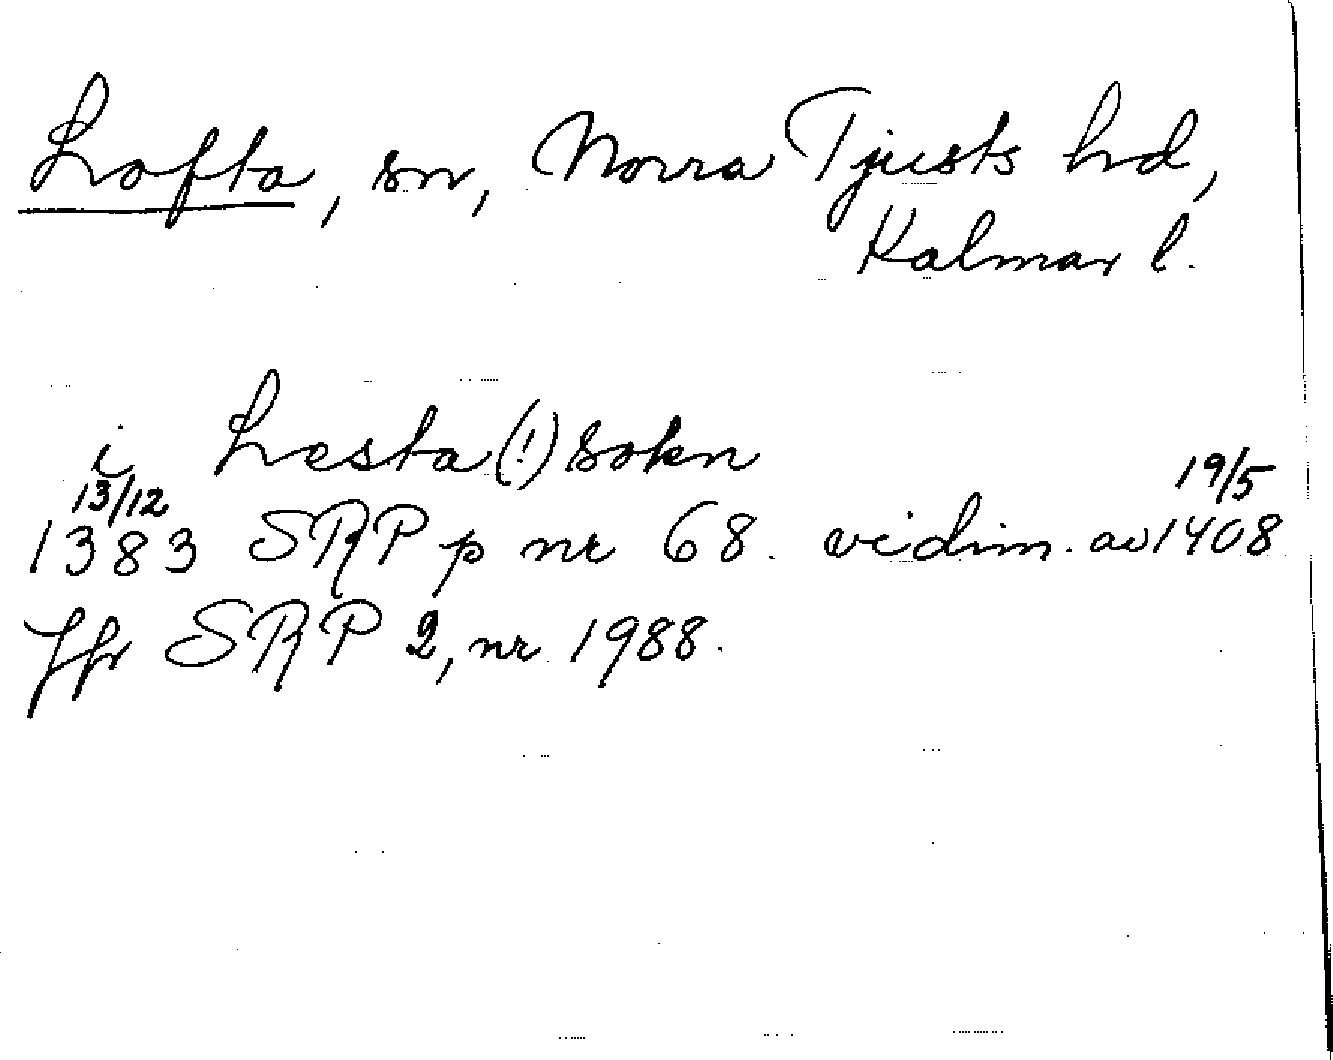 Lofta, sn, Norra Tjusts hd,
Kalmar l.
i Lesta (!) sokn
13/12 19/5
1383 SRP p nr 68. vidim. av 1408
Jfr SRP 2, nr 1988.